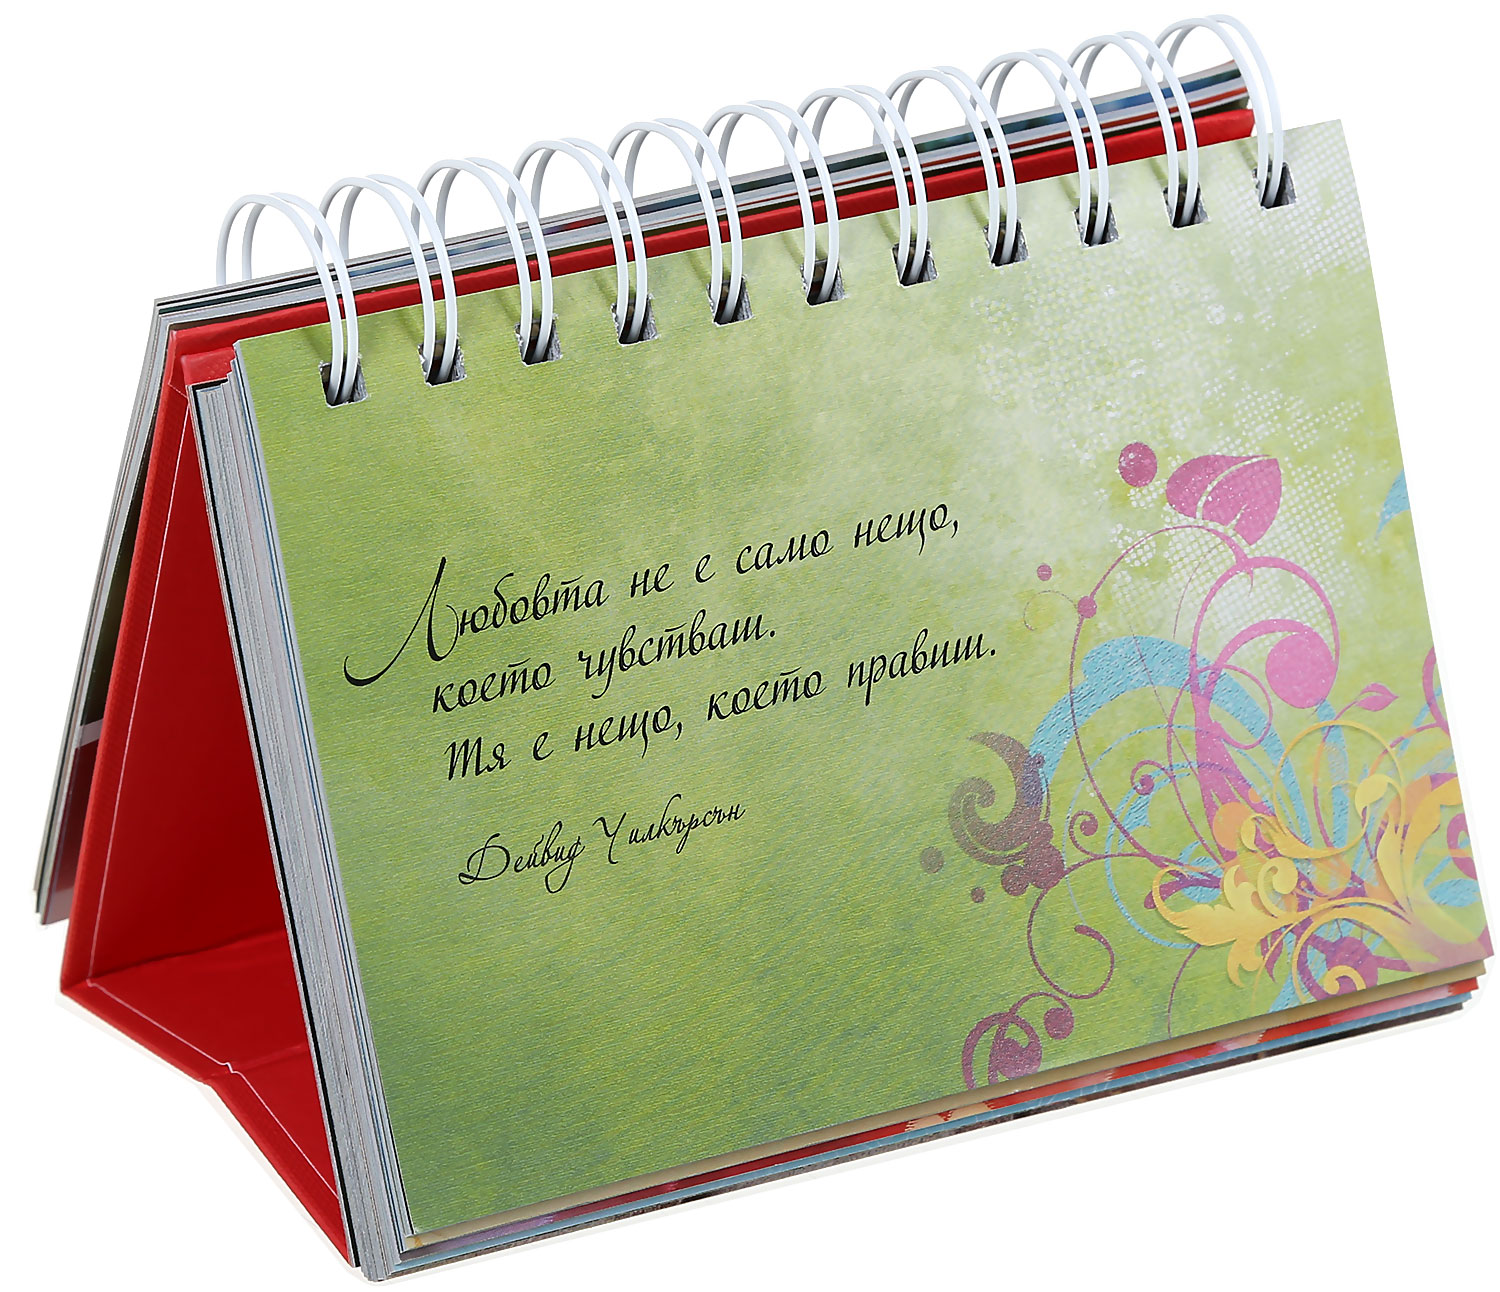 Любовта не е само нещо,
което чувстваш.
Тя е нещо, което правиш.
Дейвид Уилкърсън